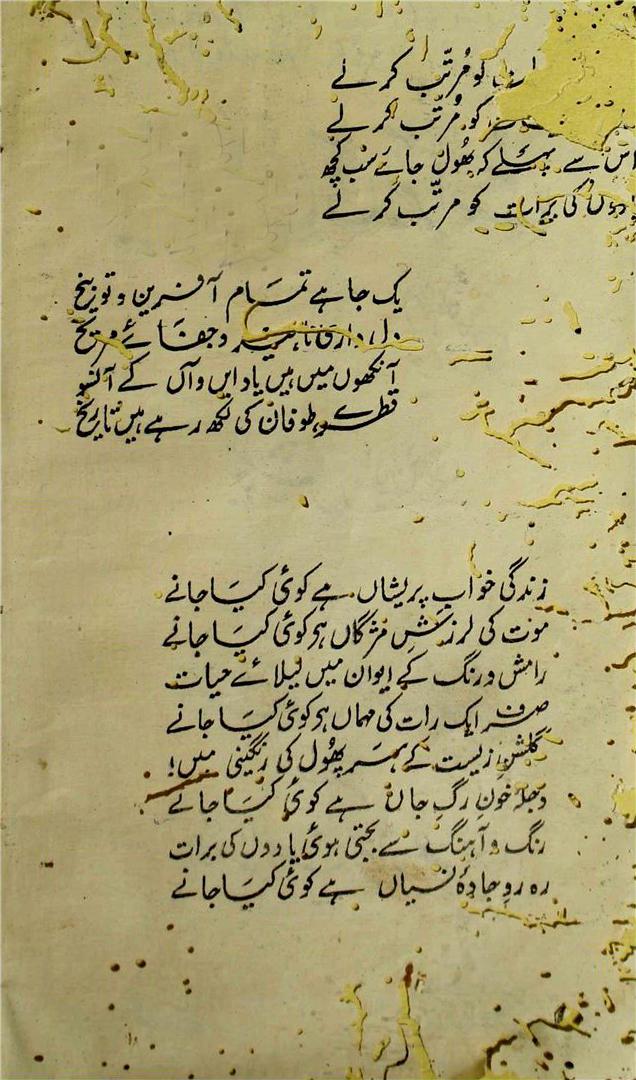 کو مُرتّب کر لے
کو مُرتّب کر لے
اس سے پہلے کہ بھُول جائے سب کچھ
یادوں کی برات کو مرتّب کر لے
یک جا ہے تمام آفرین و توبیخ
و جفائے مریخ
آنکھوں میں ہیں یاد این و آں کے آنسو
قطرے، طوفان کی لکھ رہے ہیں تاریخ
زندگی خوابِ پریشاں ہے کوئی کیا جانے
موت کی لرزشِ مژگاں ہے کوئی کیا جانے
رامش و رنگ کے ایوان میں لیلائے حیات
صرف ایک رات کی مہماں ہے کوئی کیا جانے
گلشنِ زیست کے ہر پھُول کی رنگینی میں!
دجلۂ خونِ رگِ جاں ہے کوئی کیا جانے
رنگ و آہنگ سے بجتی ہوئی یادوں کی برات
رہ روِ جادۂ نسیاں ہے کوئی کیا جانے